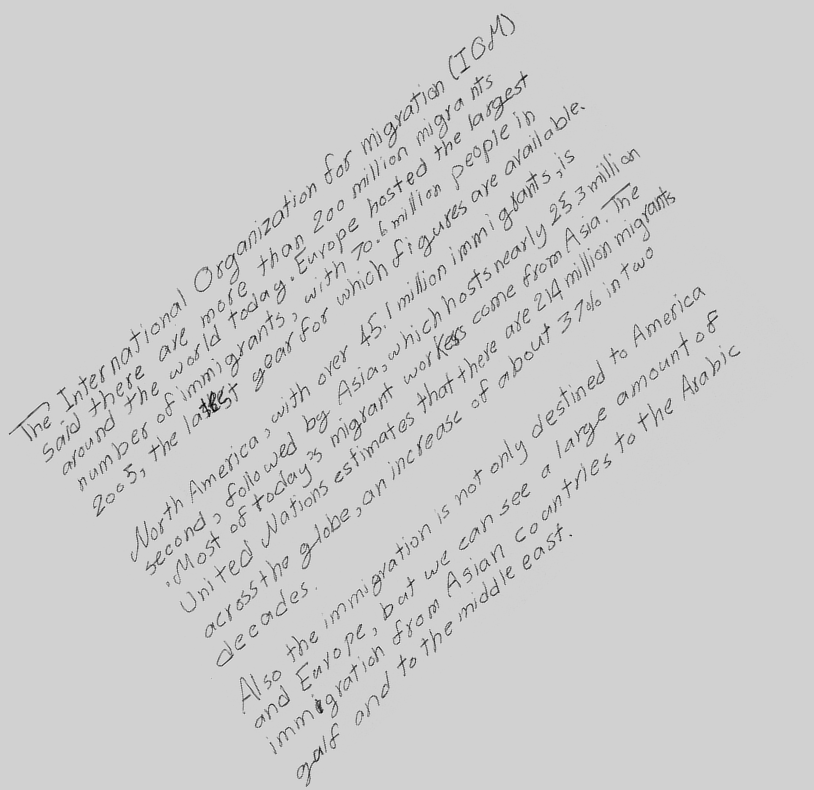 The International Organization for migration (IOM)
Said there are more than 200 million migrants
around the world today. Europe hosted the largest
number of immigrants, with 70.6 million people in
2005, the latest year for which figures are available.
North America, with over 45.1 million immigrants, is
second, followed by Asia, which hosts nearly 25.3 million
. Most of today's migrant workers come from Asia. The
United Nations estimates that there are 214 million migrants
across the globe, an increase of about 37% in two
decades.
Also the immigration is not only destined to America
and Europe, but we can see a large amount of
immigration from Asian countries to the Arabic
gulf and to the middle east.